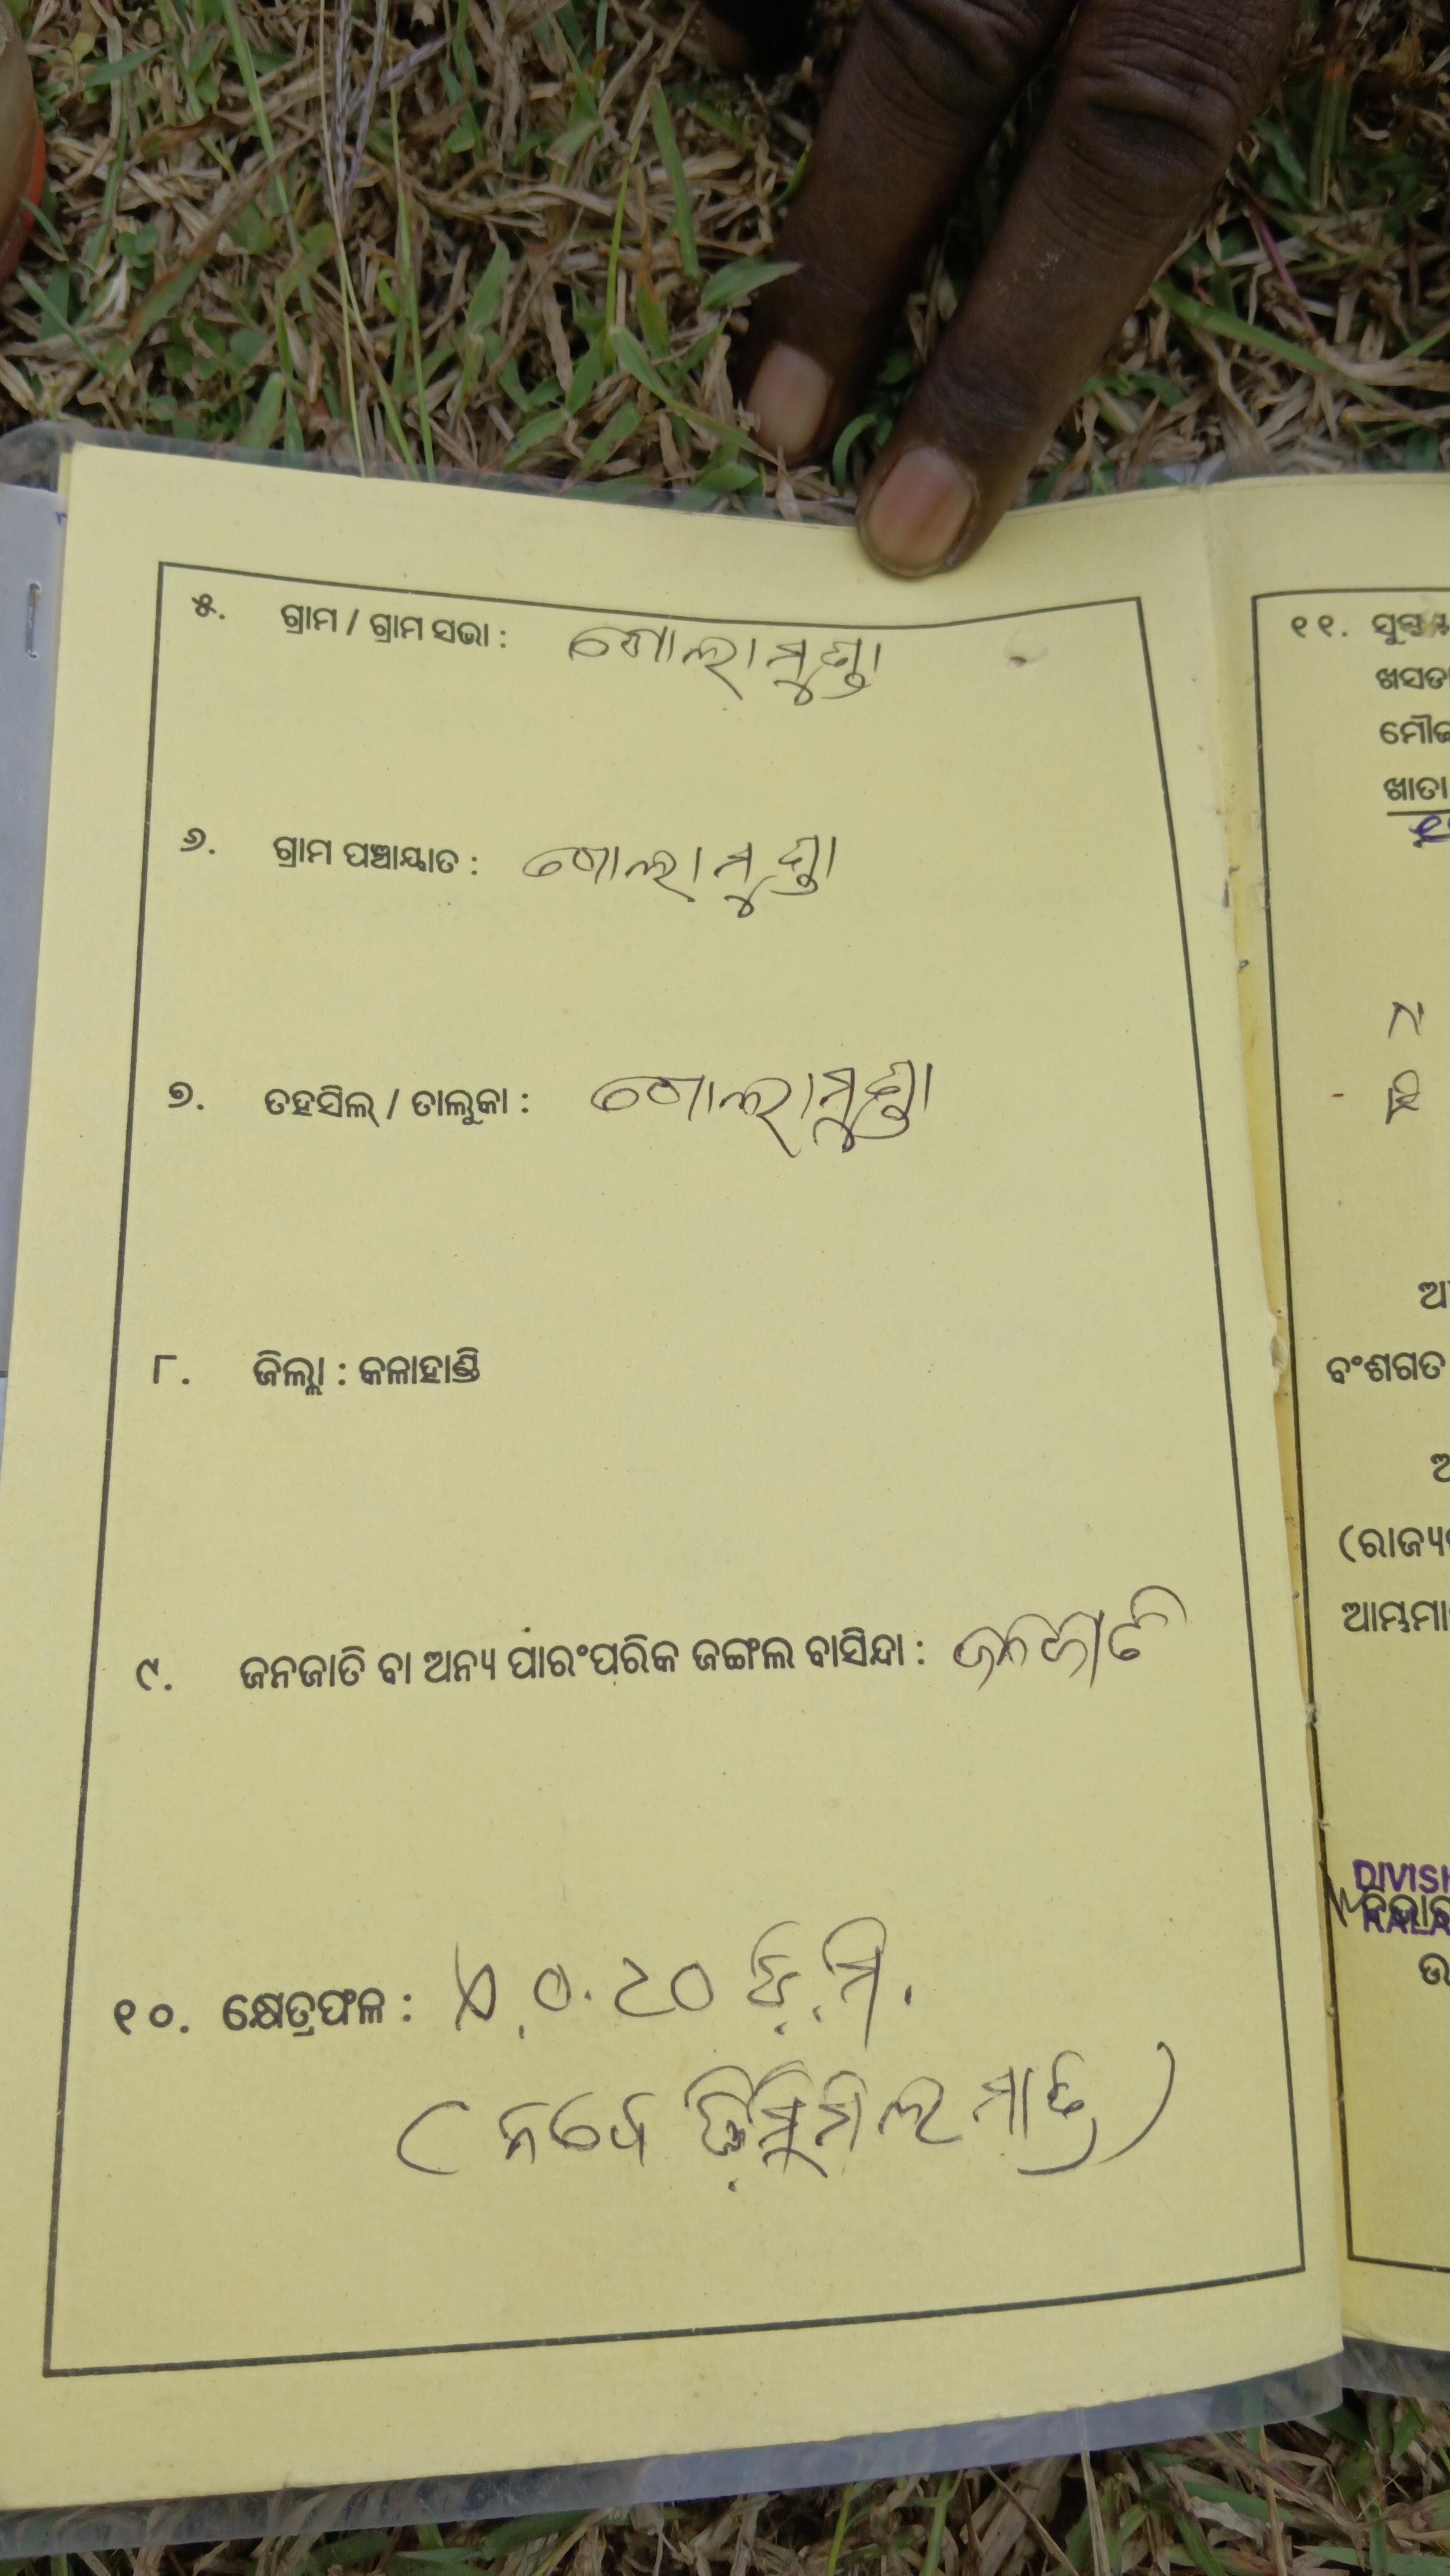 ୫. ଗ୍ରାମ / ଗ୍ରାମ ସଭା : ଗୋଲାମୁଣ୍ଡା
୬. ଗ୍ରାମ ପଞ୍ଚାୟାତ : ଗୋଲାମୁଣ୍ଡା
୭. ତହସିଲ୍ / ତାଲୁକା : ଗୋଲାମୁଣ୍ଡା
୮. ଜିଲ୍ଲା : କଳାହାଣ୍ଡି
୯. ଜନଜାତି ବା ଅନ୍ୟ ପାରଂପରିକ ଜଙ୍ଗଲ ବାସିନ୍ଦା : ଜନଜାତି
୧୦. କ୍ଷେତ୍ରଫଳ : ୦.୨୦ ଡି.ମି.
ମାତ୍ର )
୧୧.
ଖସଡା
ମୌଜା
ଖାତା
ବଂଶଗତ
(ରାଜ୍ୟ
ଆମ୍ଭମା
DIVISI
KALA